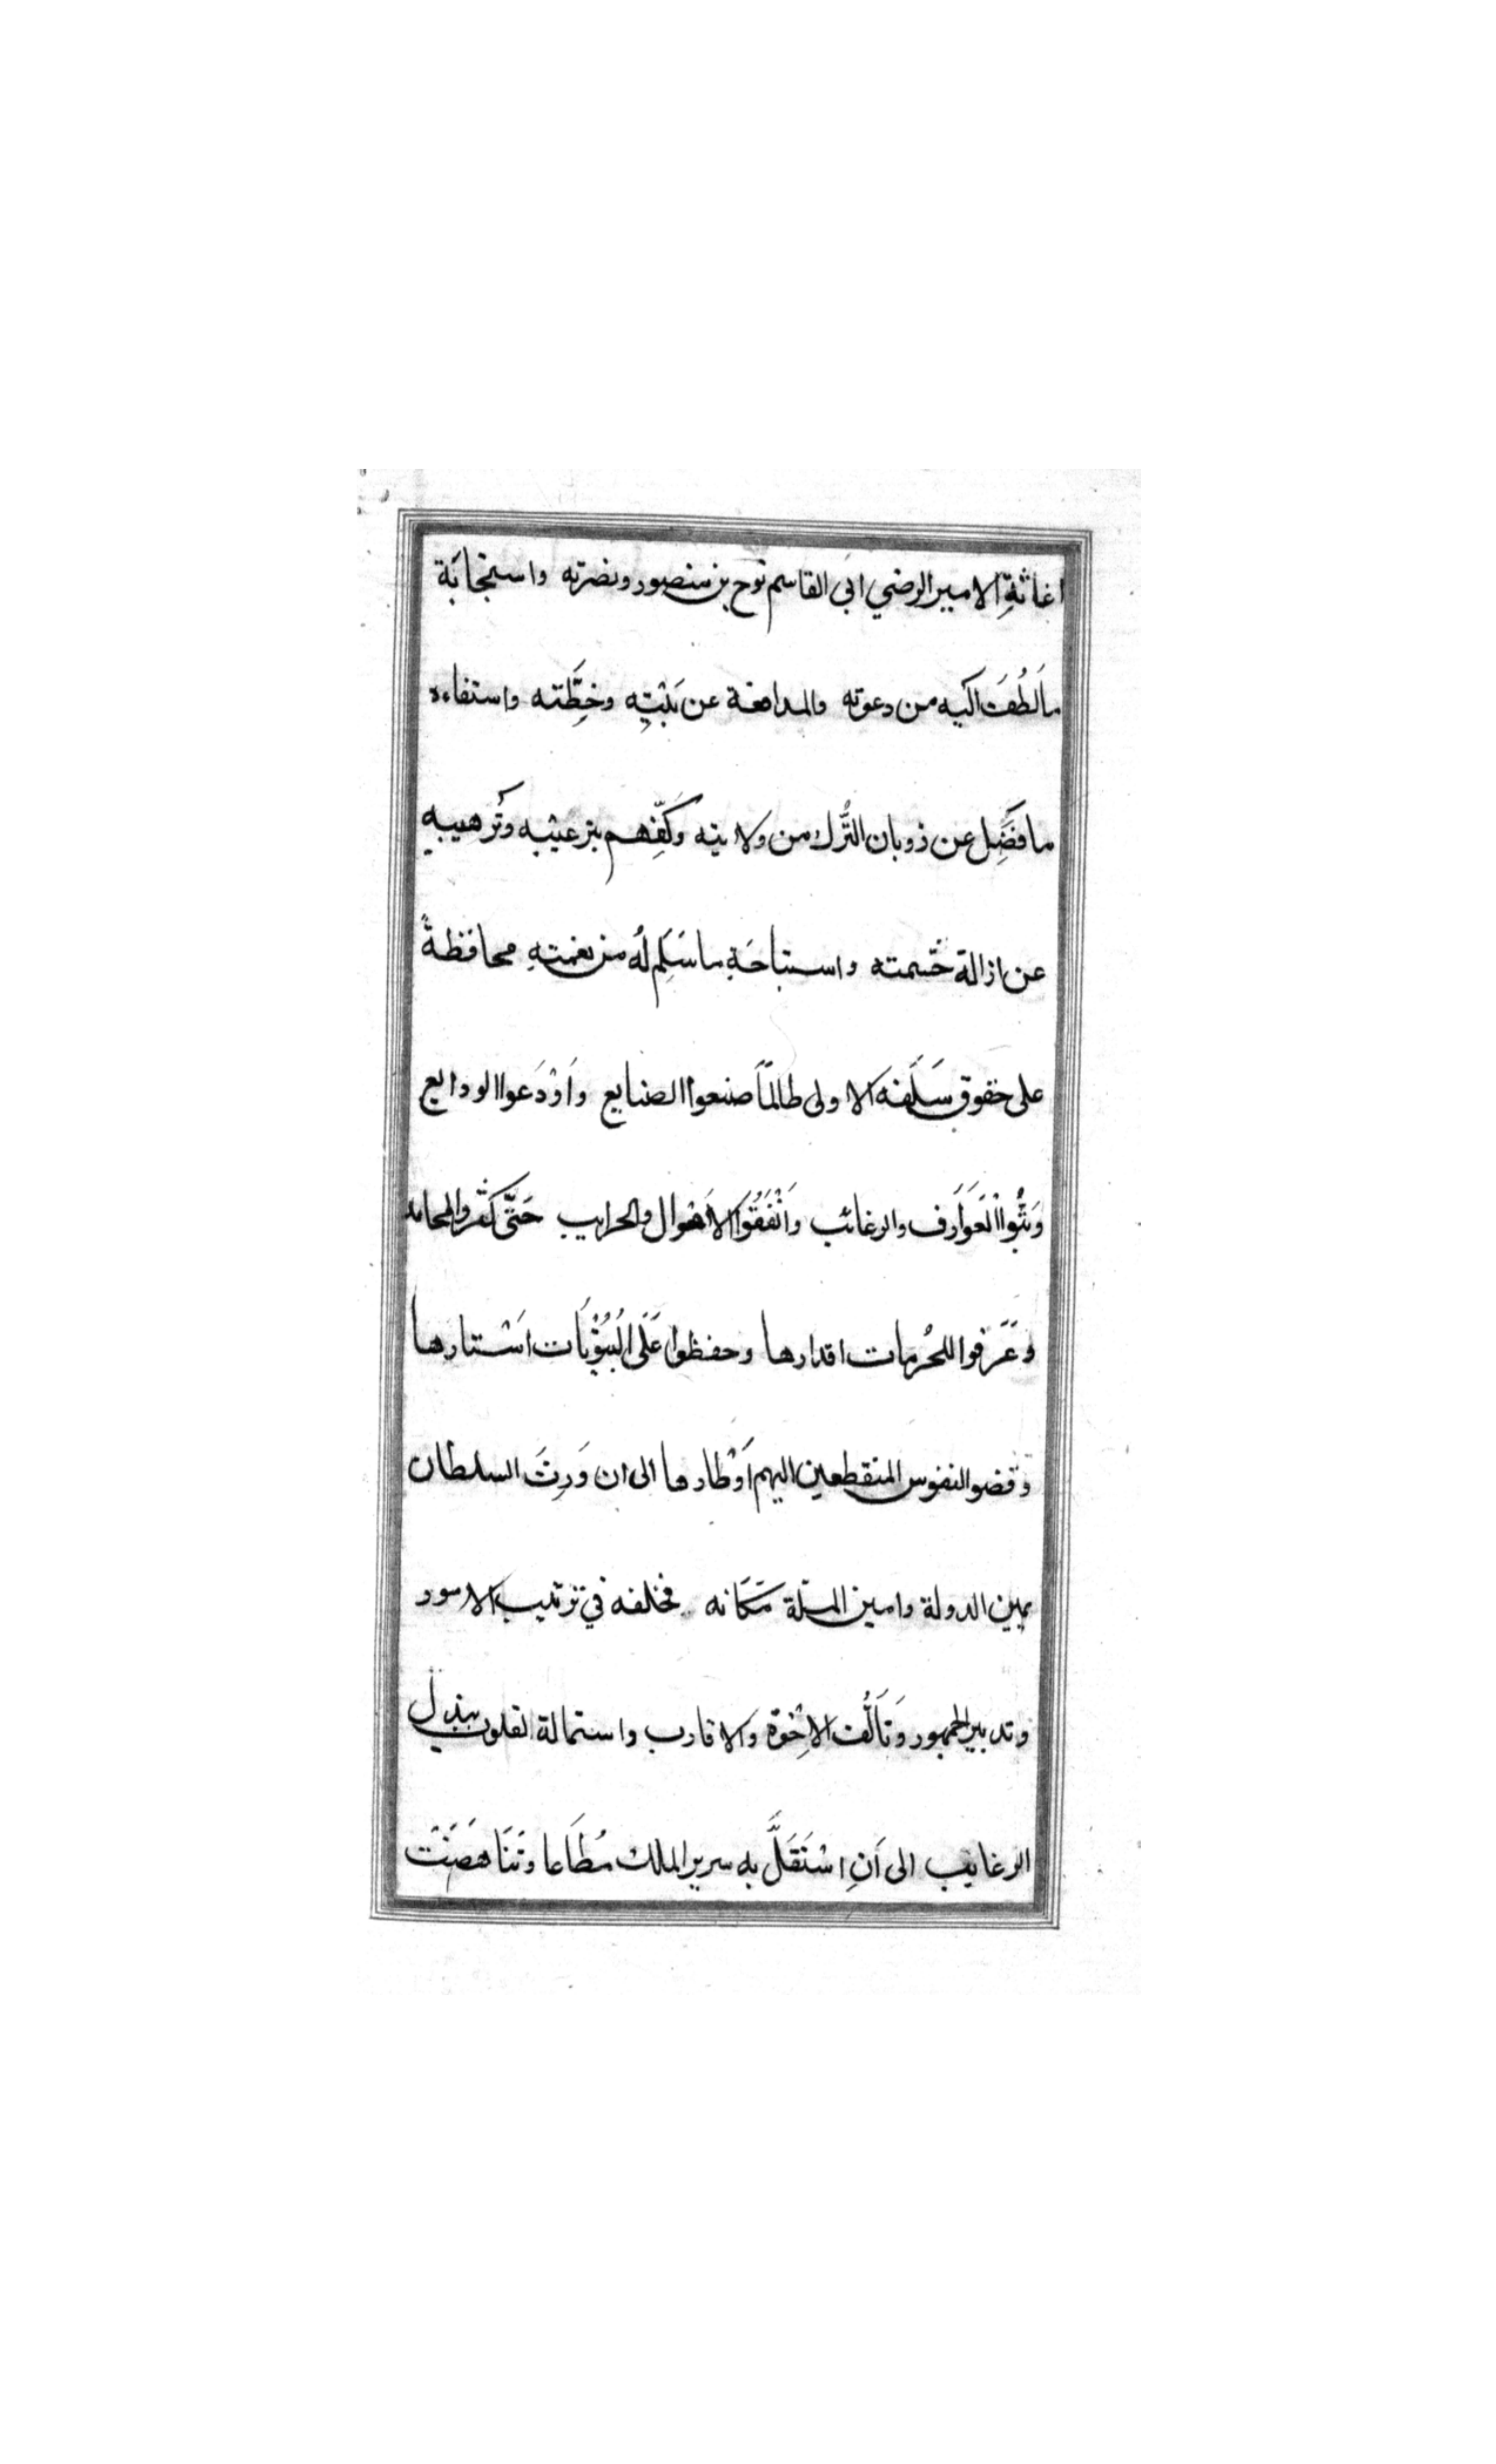 اغاثةِ الامير الرضي ابى القاسم نوح بن منصور ونصرته واستجابَة
ما لَطُفَ اليه من دعوته والمدافعة عن بَيْتِهِ وخِطَّته واستفاءه
ما فَضَلَ عن ذوبان التُّرك من ولايته وكَفِّهم بترغيبه وتُرهيبهِ
عن ازالة حَشمته واستباحَةِ ما سَلِم لهُ من نعمتهِ محافظةً
على حقوق سَلَفه الاولى طالمَا صنعوا الصنايع واَوْدَعوا الودايع
وَبَثُّوا الْعَوَارَف والرغائب وَاَنْفَقُوَا الاَموال والحرايب حَتَّى كَثُر والمحامد
وعَرَفوا للحُرمات اقدارها وحفظوا عَلَى الْبُيُوْتَات اَسْتارها
وقضو النفوس المنقطعين اليهم اَوْطارها الى ان وَرِثَ السلطان
يمين الدولة وامين الملّة مَكَانه فخلفه في ترتيب الامور
وتدبير الجمهور وَتَاَلُّف الاِخْوَة والاقارب واستمالة القلوب ببذل
الرغايب الى اَنِ اسْتَقَلَّ به سرير الملك مُطَاعا وتَنَاهَضَتْ